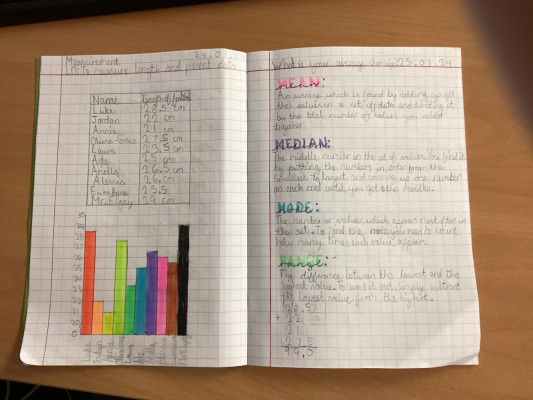 24.01.24
Measurement
LO: To measure length and present data
Name Length of foot/cm
Luke 28.5 cm
Jordan 22 cm
Annie 21 cm
27.5 cm
Laura 23.5 cm
Ade 25 cm
Ariella 26.5 cm
Alessia 26 cm
25.5
Mr. Elzey 29 cm
30
29
28
27
26
25
24
23
22
21
20
What is your average 25.01.24
MEAN:
An average which is found by adding up all
the values in a set of data and dividing it
by the total number of values you added
together.
MEDIAN:
The middle number in the set of values. You find it
by putting the numbers in order from the
smallest to largest and crossing up one number
on each end until you get to the middle.
MODE:
The number or values which appear most often in
the set. To find the mode you need to count
how many times each value appears.
RANGE:-
The difference between the lowest and the
highest value. To work it out, simply subtract
the lowest value from the highest.
28.5
+ 22
21
27.5
99.0